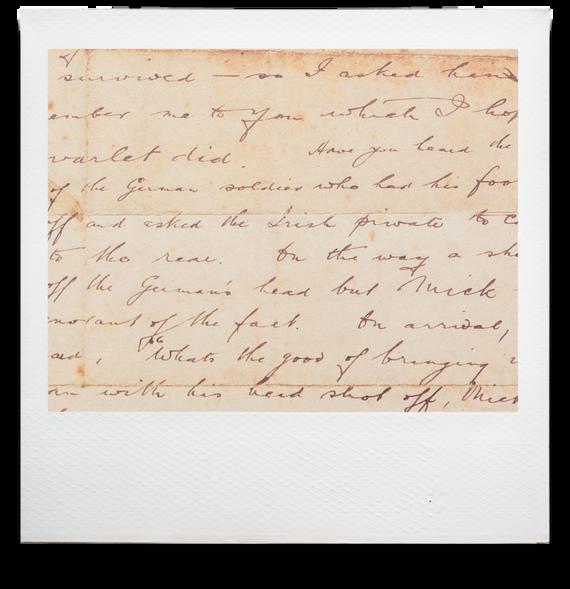 survived — so I asked him
ember me to you which I hop
varlet did. Have you heard the
of the German soldier who had his foo
ff and asked the Irish private to c
to the rear. On the way a she
off the German's head but Mick
norant of the fact. On arrival,
aid, "Whats the good of bringing
an with his head shot off, Mick